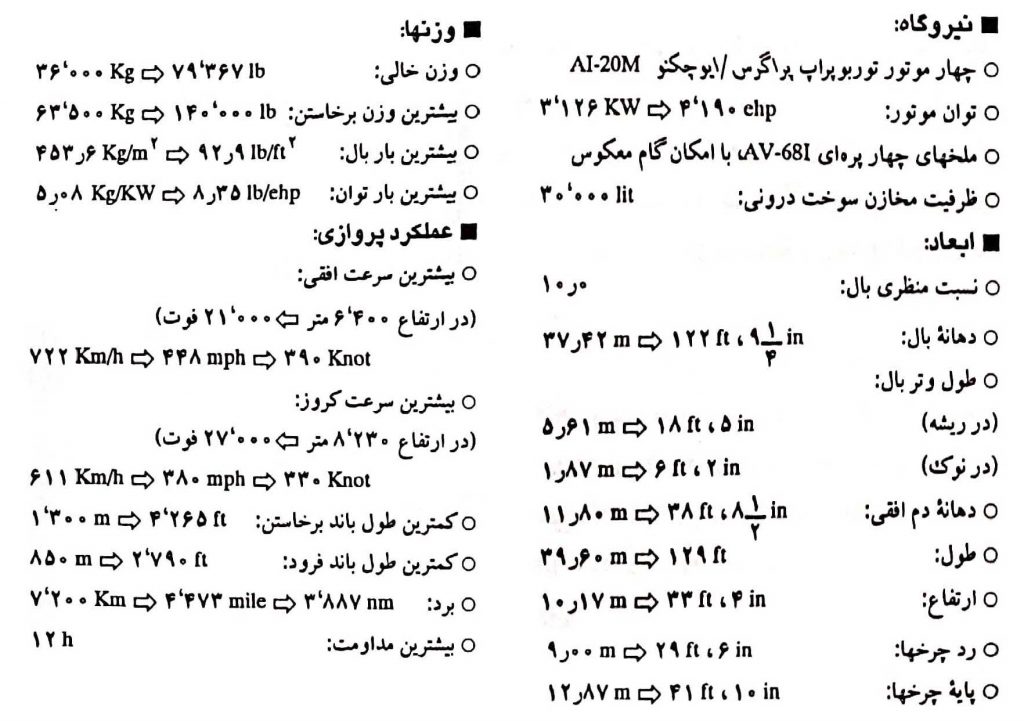 ■ نیروگاه:
○ چهار موتور توربوپراپ پراگرس /ایوچکنو AI-20M
○ توان موتور: ۳٬۱۲۶ KW ⇨ ۴٬۱۹۰ ehp
○ ملخهای چهار پره‌ای AV-68I، با امکان گام معکوس
○ ظرفیت مخازن سوخت درونی: ۳۰٬۰۰۰ lit
■ ابعاد:
○ نسبت منظری بال: ۱۰٫۰
○ دهانهٔ بال: ۳۷٫۴۲ m ⇨ ۱۲۲ ft ، ۹ ۱/۴ in
○ طول وتر بال:
(در ریشه) ۵٫۶۱ m ⇨ ۱۸ ft ، ۵ in
(در نوک) ۱٫۸۷ m ⇨ ۶ ft ، ۲ in
○ دهانهٔ دم افقی: ۱۱٫۸۰ m ⇨ ۳۸ ft ، ۸ ۱/۲ in
○ طول: ۳۹٫۶۰ m ⇨ ۱۲۹ ft
○ ارتفاع: ۱۰٫۱۷ m ⇨ ۳۳ ft ، ۴ in
○ رد چرخها: ۹٫۰۰ m ⇨ ۲۹ ft ، ۶ in
○ پایهٔ چرخها: ۱۲٫۸۷ m ⇨ ۴۱ ft ، ۱۰ in
■ وزنها:
○ وزن خالی: ۳۶٬۰۰۰ Kg ⇨ ۷۹٬۳۶۷ lb
○ بیشترین وزن برخاستن: ۶۳٬۵۰۰ Kg ⇨ ۱۴۰٬۰۰۰ lb
○ بیشترین بار بال: ۴۵۳٫۶ Kg/m۲ ⇨ ۹۲٫۹ lb/ft۲
○ بیشترین بار توان: ۵٫۰۸ Kg/KW ⇨ ۸٫۳۵ lb/ehp
■ عملکرد پروازی:
○ بیشترین سرعت افقی:
(در ارتفاع ۶٬۴۰۰ متر ⇦ ۲۱٬۰۰۰ فوت)
۷۲۲ Km/h ⇨ ۴۴۸ mph ⇨ ۳۹۰ Knot
○ بیشترین سرعت کروز:
(در ارتفاع ۸٬۲۳۰ متر ⇦ ۲۷٬۰۰۰ فوت)
۶۱۱ Km/h ⇨ ۳۸۰ mph ⇨ ۳۳۰ Knot
○ کمترین طول باند برخاستن: ۱٬۳۰۰ m ⇨ ۴٬۲۶۵ ft
○ کمترین طول باند فرود: ۸۵۰ m ⇨ ۲٬۷۹۰ ft
○ برد: ۷٬۲۰۰ Km ⇨ ۴٬۴۷۳ mile ⇨ ۳٬۸۸۷ nm
○ بیشترین مداومت: ۱۲ h